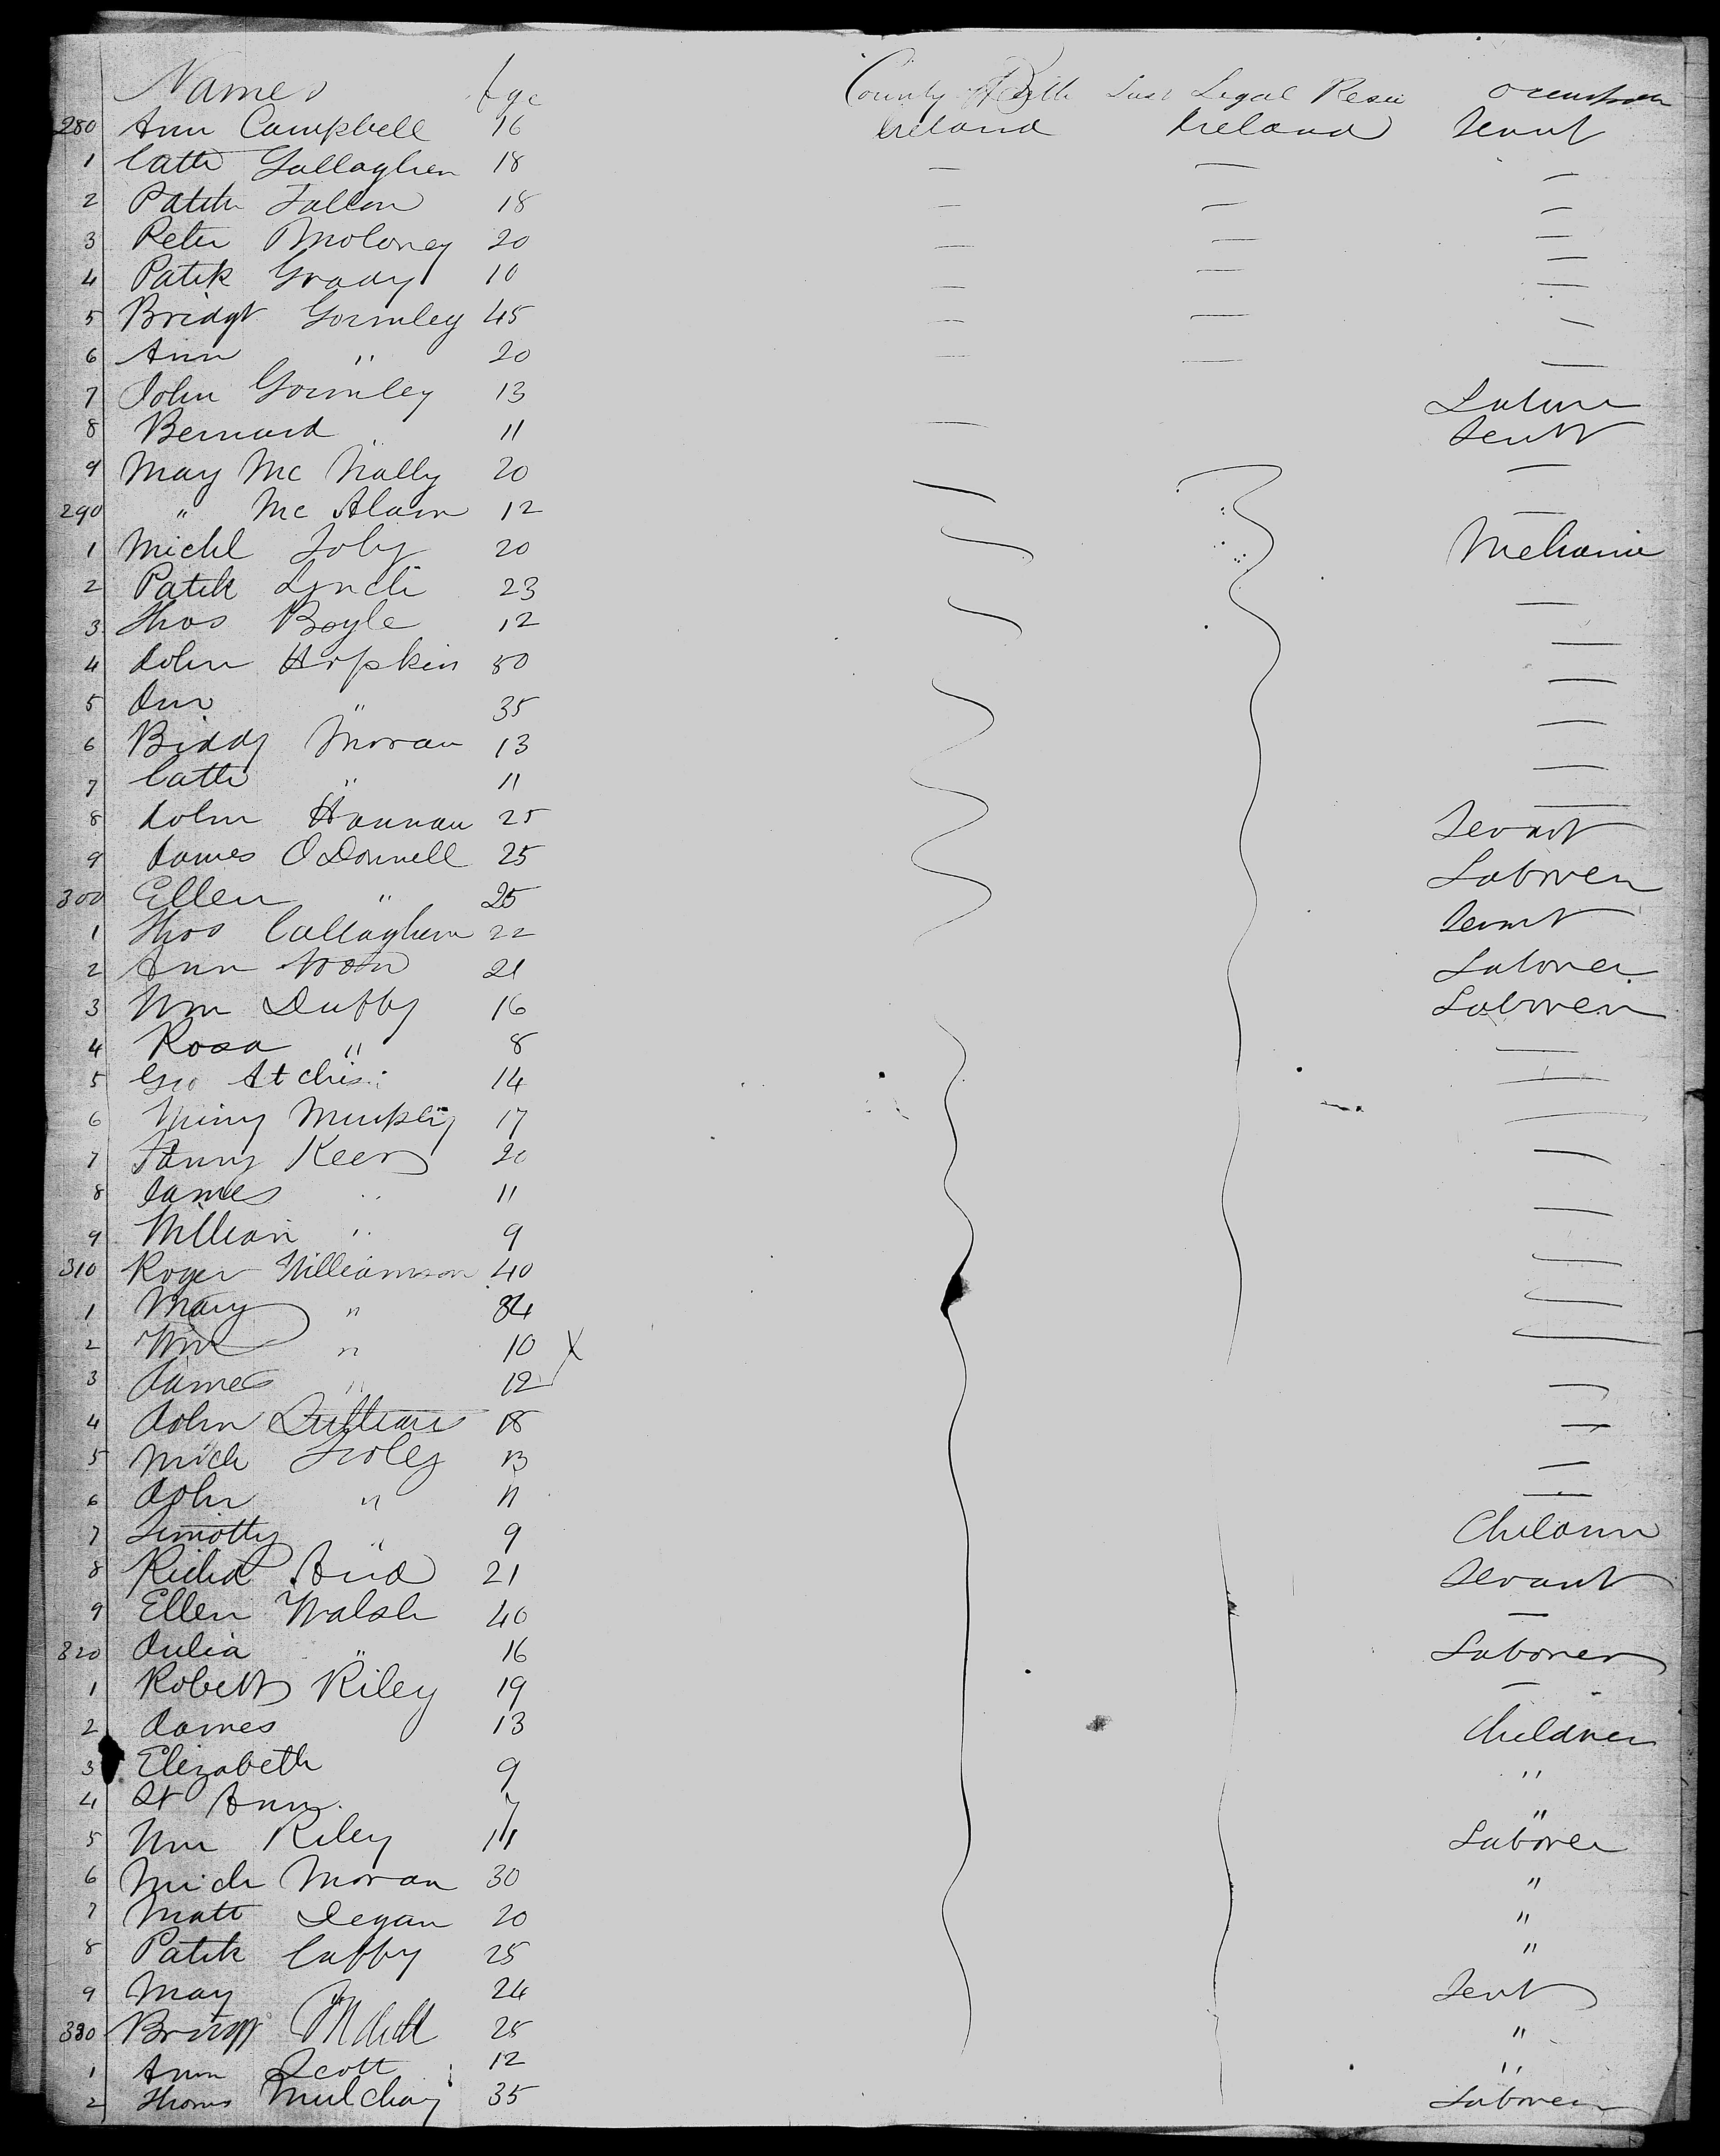 Names Age County of Birth Last Legal Resi
280 Ann Campbell 16 Ireland Ireland Servt
1 Cath Gallagher 18 — — —
2 Patck Fallon 18 — — —
3 Peter Moloney 20 — — —
4 Patck Grady 10 — — —
5 Bridgt Gormley 45 — — —
6 Ann " 20 — — —
7 John Gormley 13 Labour
8 Bernard " 11 — Servt
9 May Mc Nally 20 —
290 " Mc 12 —
1 Michl Foly 20 Mchanic
2 Patck Lynch 23 —
3 Thos Boyle 12 —
4 John Hopkin 50 —
5 Ann " 35 —
6 Biddy Moran 13 —
7 Cath " 11 —
8 John Hannan 25 Servant
9 James ODonnell 25 Laborer
300 Ellen " 25 Servnt
1 Thos Callaghan 22 Laborer
2 Ann 21 Laborer
3 Wm Duffy 16 —
4 Rosa " 8 —
5 Geo 14 —
6 Murphy 17 —
7 Fanny Keer 20 —
8 James " 11 —
9 William " 9 —
310 Roger Williamson 40 —
1 Mary " 34 —
2 Wm " 10 X —
3 James " 12 —
4 John 18 —
5 Mich 13 —
6 John " 11
7 Timothy " 9 Children
8 Richd 21 Servant
9 Ellen Walsh 40 —
320 Julia " 16 Laborer
1 Robert Riley 19 —
2 James 13 Children
3 Elizabeth 9 "
4 St Ann 7 "
5 Wm Riley 11 Laborer
6 Mich Moran 30 "
7 Matt Degan 20 "
8 Patck Caffy 25 "
9 May 24 Servt
330 25 "
1 Ann Scott 12 "
2 Thoms Mulchay 35 Laborer